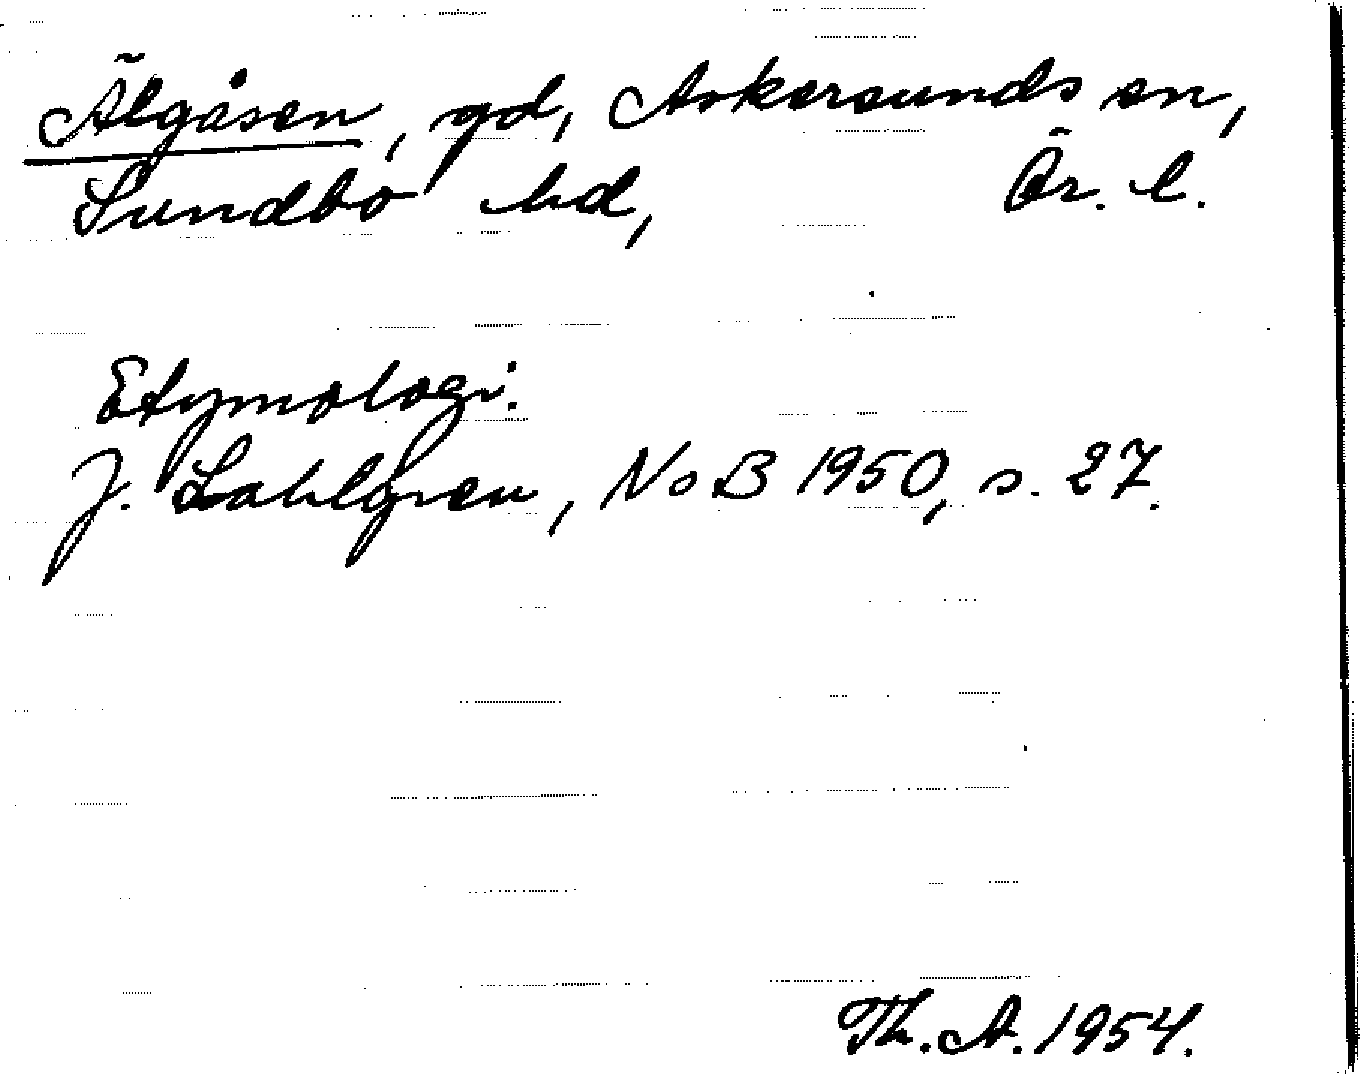 Älgåsen, gd, Askersunds sn,
Sundbo hd, Ör. l.
Etymologi.
J. Sahlgren, NoB 1950, s. 27.
Th. A. 1954.